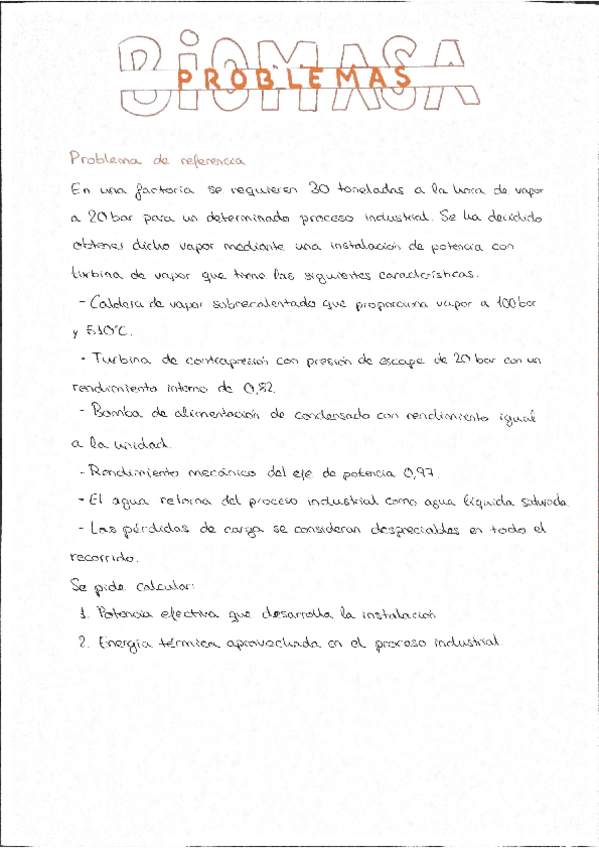 BIOMASA
PROBLEMAS
Problema de referencia
En una factoría se requieren 30 toneladas a la hora de vapor
a 20 bar para un determinado proceso industrial. Se ha decidido
obtener dicho vapor mediante una instalación de potencia con
turbina de vapor que tiene las siguientes características:
- Caldera de vapor sobrecalentado que proporciona vapor a 100 bar
y 510°C.
- Turbina de contrapresión con presión de escape de 20 bar con un
rendimiento interno de 0,82.
- Bomba de alimentación de condensado con rendimiento igual
a la unidad.
- Rendimiento mecánico del eje de potencia 0,97.
- El agua retorna del proceso industrial como agua líquida saturada.
- Las pérdidas de carga se consideran despreciables en todo el
recorrido.
Se pide calcular:
1. Potencia efectiva que desarrolla la instalación
2. Energía térmica aprovechada en el proceso industrial